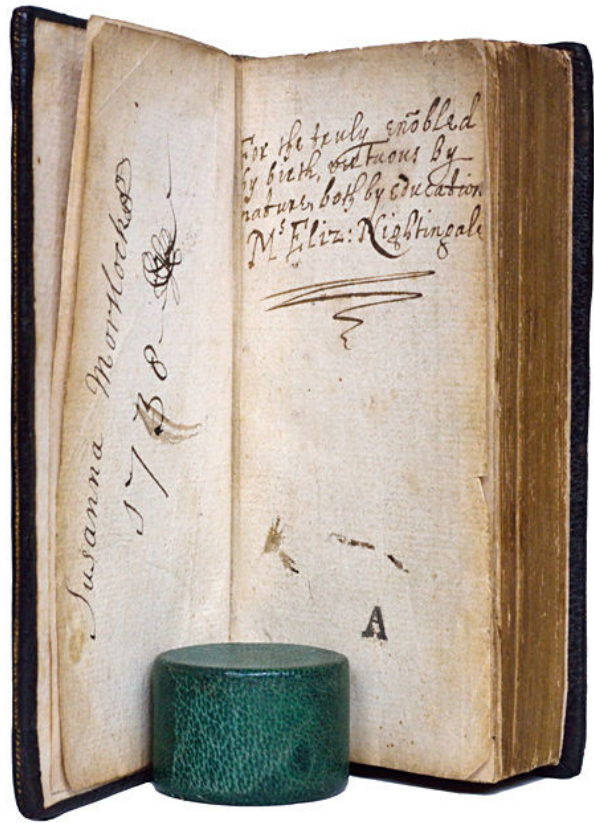 Susanna Morlock
1738
For the truly enobled
by birth, vertuous by
nature, both by education
Ms Eliz: Nightingale
A